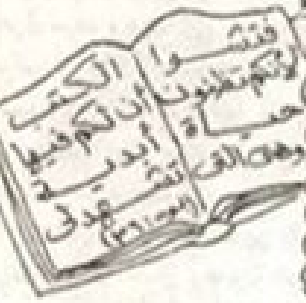 فتشوا
الكتب
لأنكم تظنون
أن لكم فيها
حياة
أبدية
وهى التى
تشهد لى